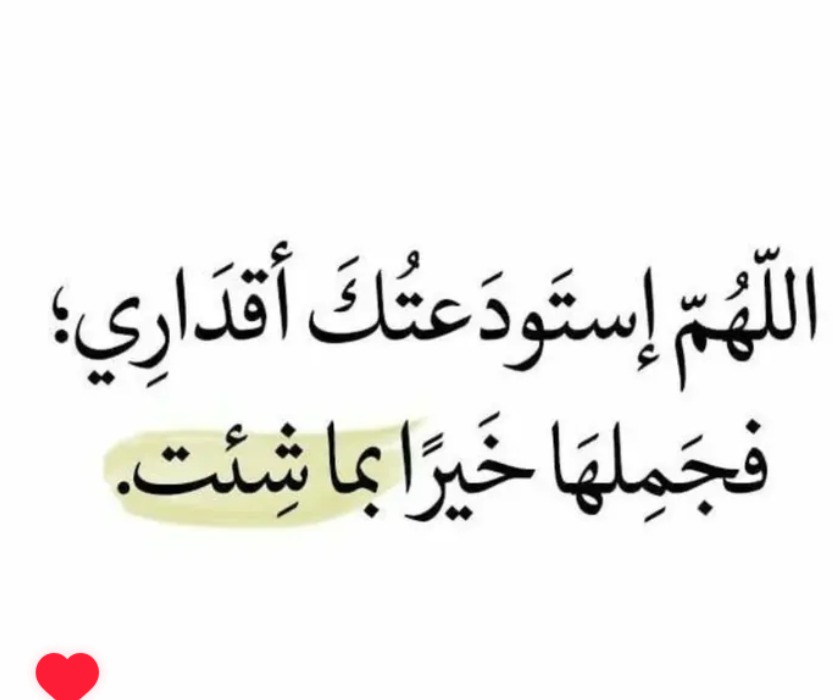 اللّهُمّ إستَودَعتُكَ أقدَارِي؛
فجَمِلهَا خَيرًا بما شِئت.